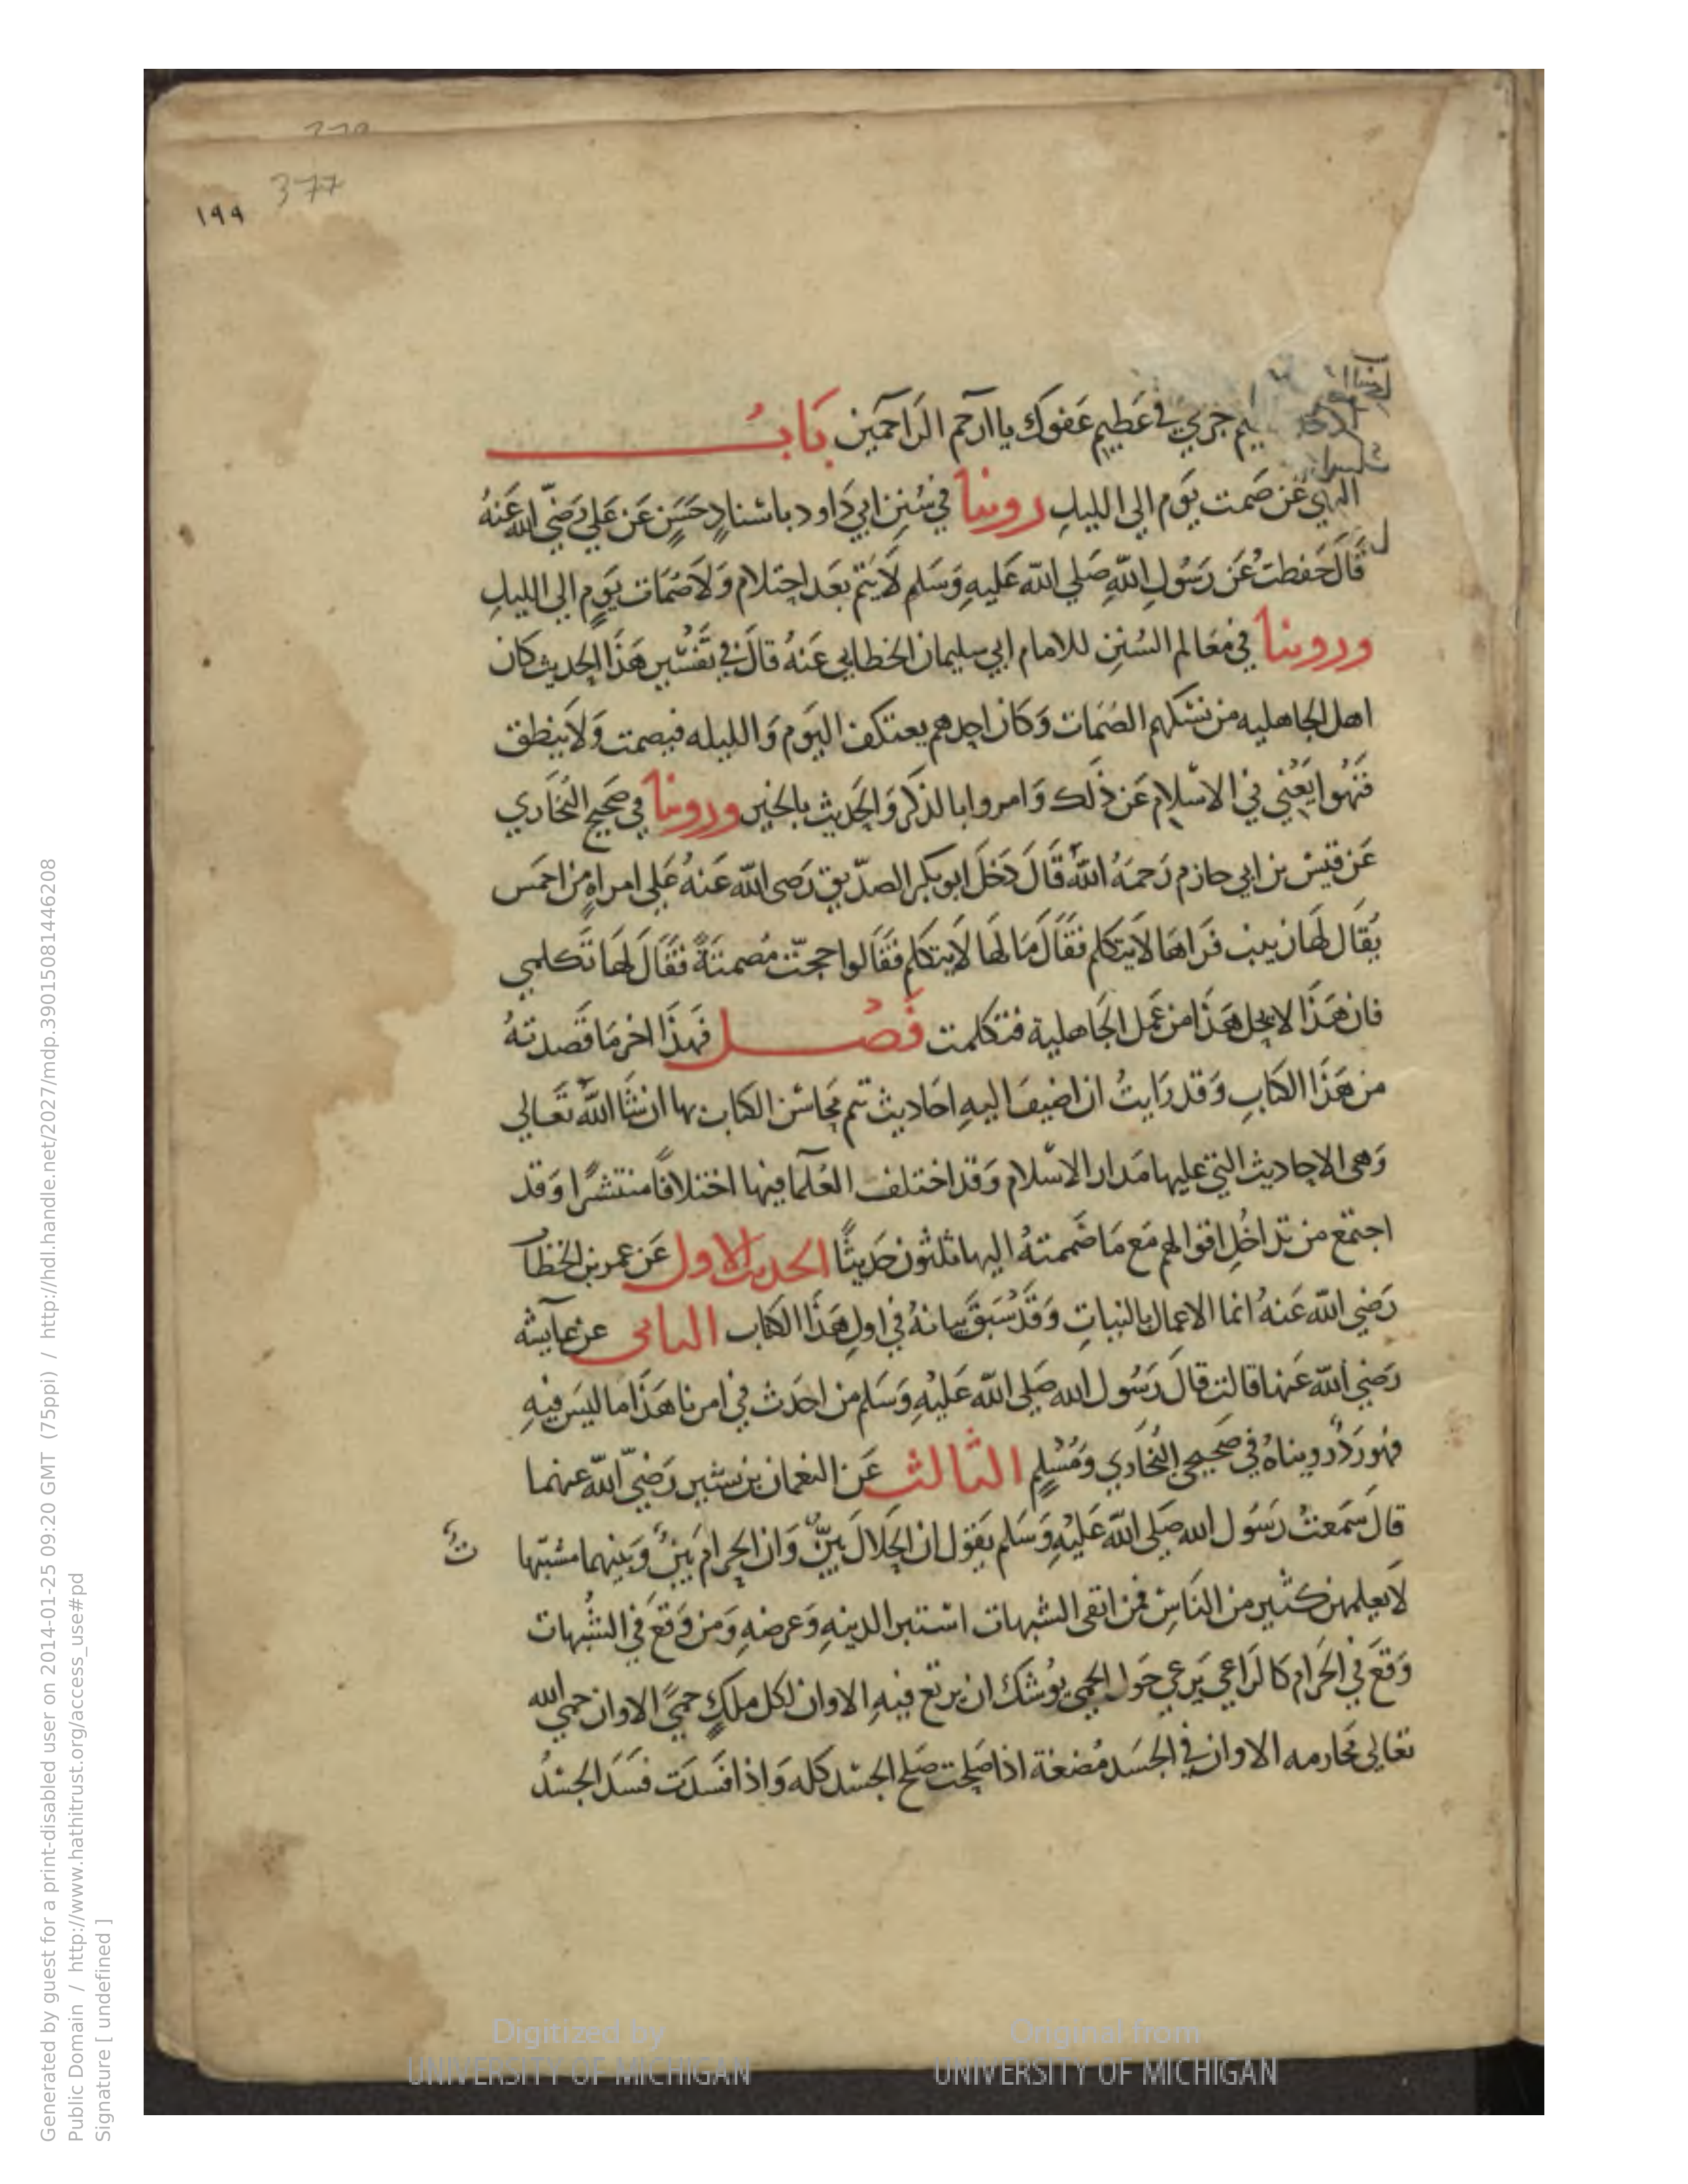 377
١٩٩
جرمي في عَظِيم عَفوك ياارَحم الرَاحمين بَابُ
النهي عَن صَمت يَوم الى الليلِ روينا في سُنن ابي دَاود باسْنادٍ حَسَنٍ عَن عَلي رَضيَ الله عَنهُ
قَالَ حَفظتُ عَن رَسُولِ اللهِ صَلي الله عَليهِ وَسَلم لَا يُتْمَ بَعد احتلام وَلَا صُمَات يَومٍ الي الليلِ
وروينا في مَعَالم السُنن للامام ابي سليمان الخطابي عَنهُ قالَ في تفَسْير هَذَا الحديث كان
اهل الجاهليه من نسْكهم الصُمَات وَكان احدهم يعتكف اليَوم وَالليله فيصمت وَلَا ينطق
فَنُهوا يَعْني في الاسْلام عَن ذَلك وَامروا بالذكر وَالحَديث بالخير وروينا في صَحيح البُخَاري
عَن قيسْ بن ابي حازم رَحمَهُ اللهُ قَالَ دَخلَ ابو بكر الصدّيق رَضى الله عَنهُ عَلي امراةٍ من احمَس
يُقَال لهَا زينب فَراهَا لَا يَتكلم فقَالَ مَا لهَا لَا يتكلم فقَالوا حجتْ مُصمتَةً فقَالَ لهَا تَكلمي
فان هَذَا لا يحل هَذَا من عَمل الجَاهلية فتكلمت فَصْل فَهذَا اخر مَا قَصدتهُ
من هَذَا الكتابِ وَقد رَايتُ ان اضيفَ اليهِ احَاديث تتم محَاسْن الكتاب بها ان شَا اللهُ تعَالي
وَهى الاحاديث التي عليها مَدار الاسْلام وَقد اختلف العُلمَا فيها اختلافًا منتشرًا وَقد
اجتمَع من تدَاخُلِ اقوالهم مَع مَا ضممتهُ اليها ثلثون حَديثًا الحديث الاول عَن عمر بن الخطاب
رَضي الله عَنهُ انما الاعمال بالنياتِ وَقد سَبقَ بيانهُ في اولِ هَذَا الكتاب الثاني عن عايشه
رَضي الله عَنها قالت قالَ رَسُول الله صَلي الله عَليْهِ وَسَلم من احَدث في امرنا هَذَا ما ليسَ فيهِ
فهو رَدٌ رويناهُ في صَحيحي البُخَاري وَمُسْلِمٍ الثالث عَن النعمان بن بشير رَضيَ الله عَنهما
قالَ سَمَعتُ رَسُول الله صَلي الله عَليْهِ وَسَلم يَقول ان الحَلالَ بَيّنٌ وَان الحَرامَ بَينٌ وَبَينهما مشتبها ت
لَا يَعلمهن كثير من النَاسْ فمن اتقى الشبهات اسْتبرا لدينهِ وَعرضهِ وَمن وَقعَ في الشُبهات
وَقعَ في الحَرام كَالرَاعي يَرعي حَول الحمي يوُشك ان يرتع فيهِ الا وان لكل ملكٍ حميً الا وان حمي الله
تعَالي محَارمه الا وان في الجسَد مُضغة اذا صَلحت صَلح الجسْد كله وَاذا فسَدت فسَدَ الجسْدُ
Digitized by
UNIVERSITY OF MICHIGAN
Original from
UNIVERSITY OF MICHIGAN
Generated by guest for a print-disabled user on 2014-01-25 09:20 GMT (75ppi) / http://hdl.handle.net/2027/mdp.39015081446208
Public Domain / http://www.hathitrust.org/access_use#pd
Signature [ undefined ]